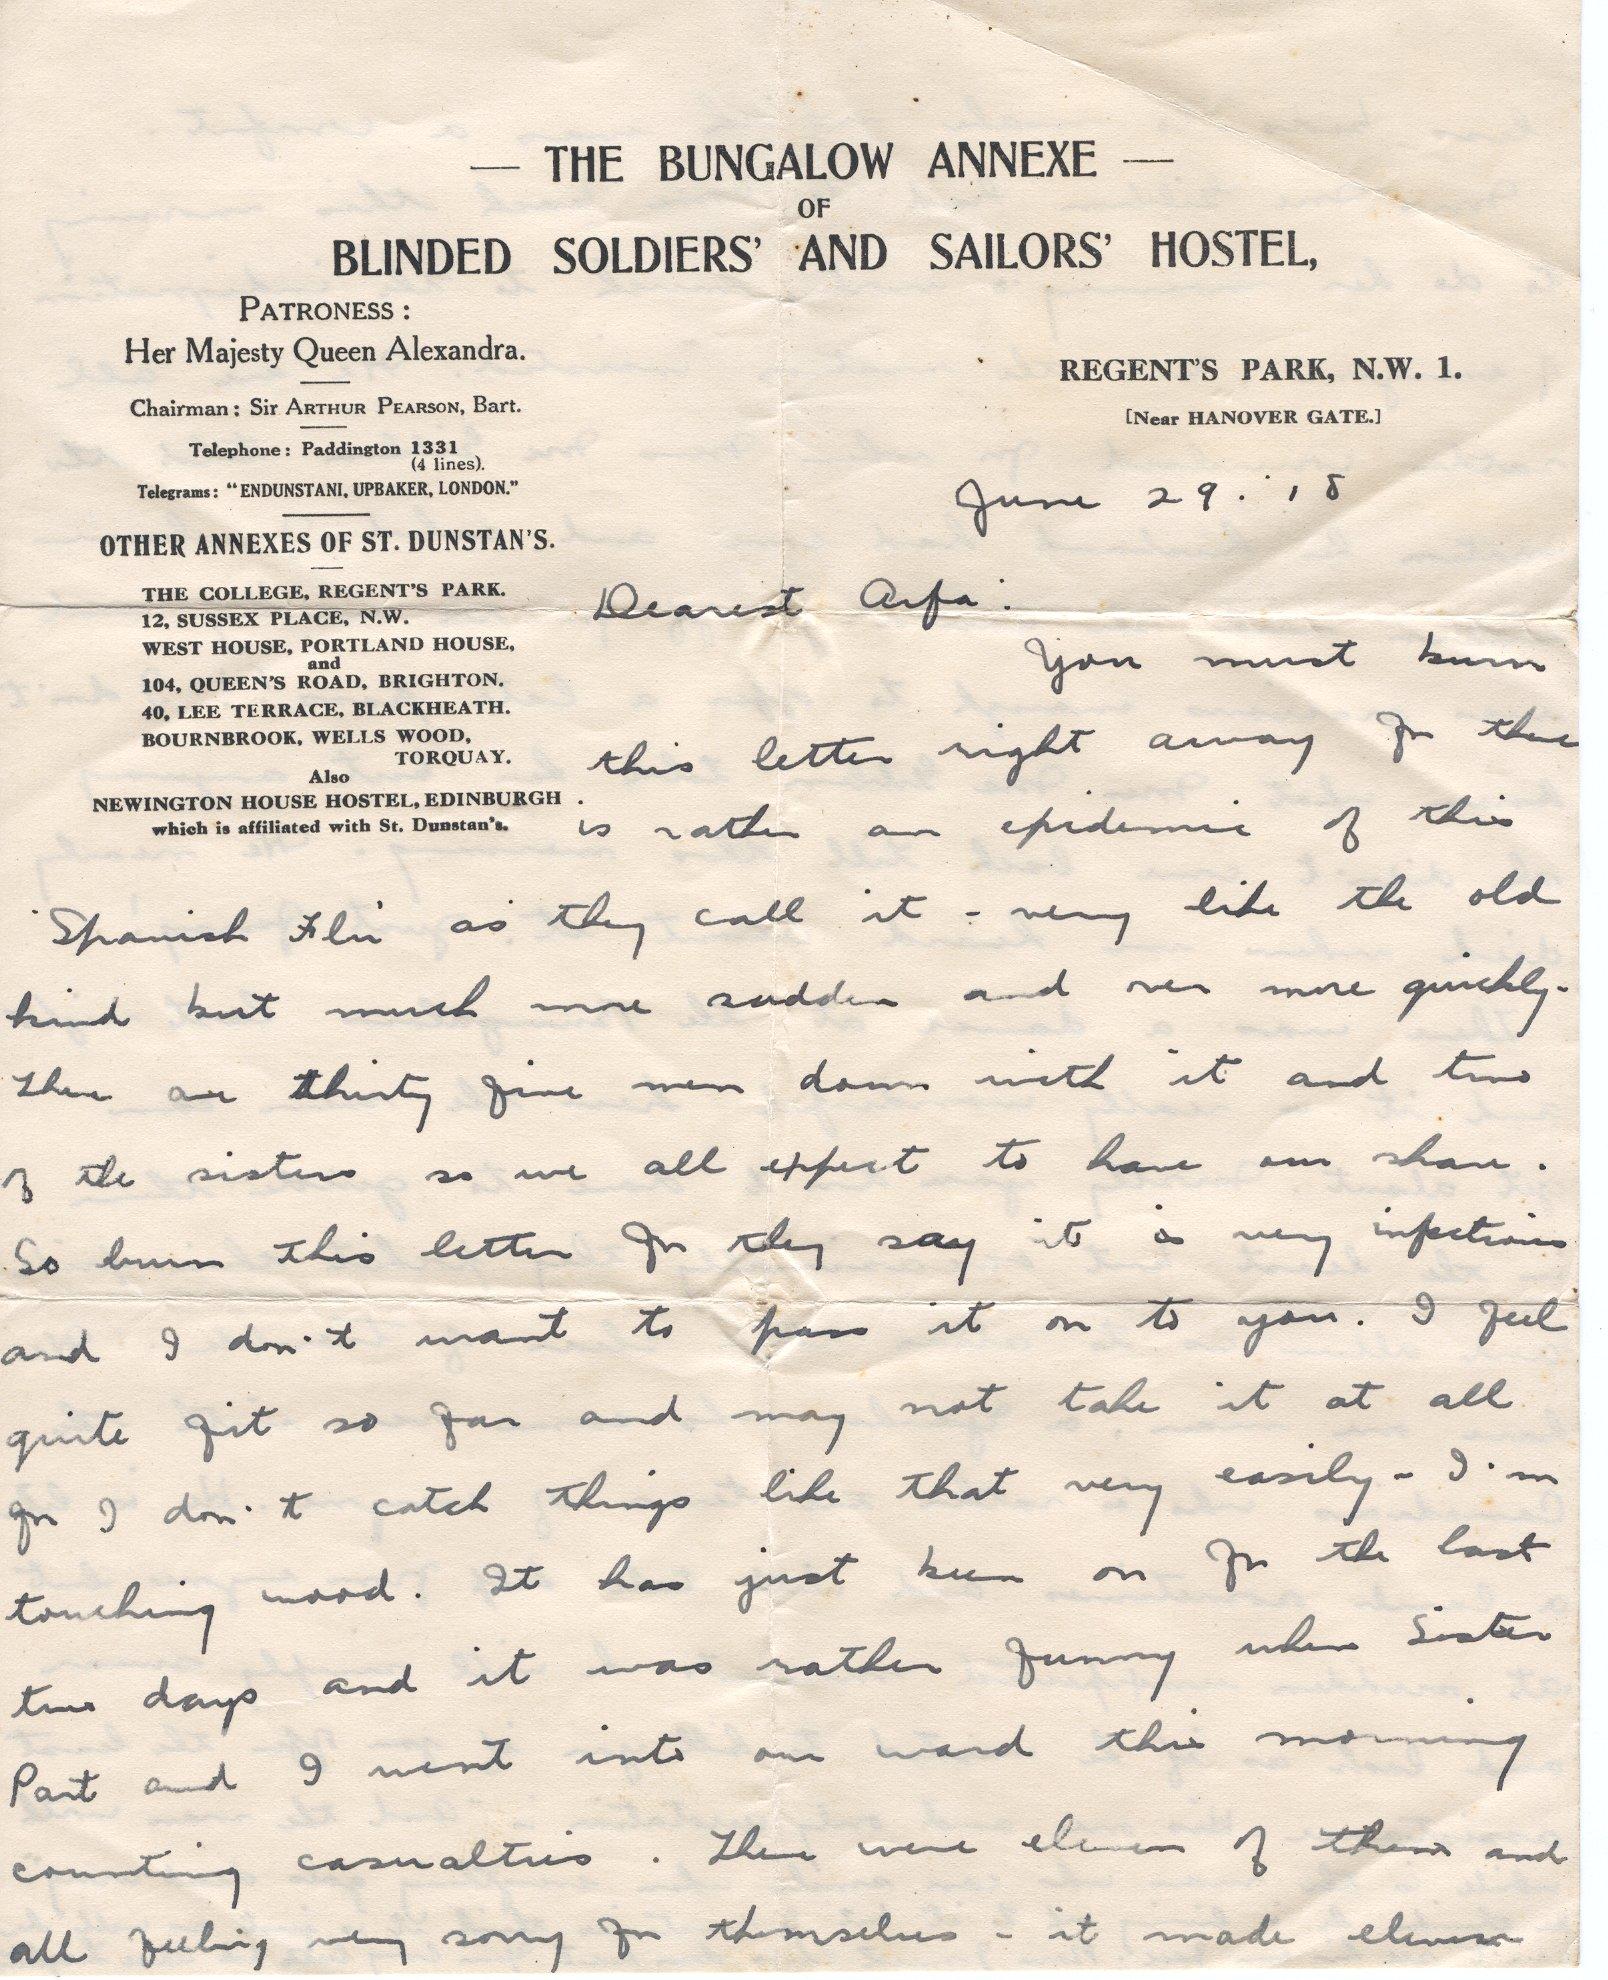 — THE BUNGALOW ANNEXE —
OF
BLINDED SOLDIERS' AND SAILORS' HOSTEL,
PATRONESS :
Her Majesty Queen Alexandra.
Chairman : Sir ARTHUR PEARSON, Bart.
Telephone : Paddington 1331
(4 lines).
Telegrams : "ENDUNSTANI, UPBAKER, LONDON."
OTHER ANNEXES OF ST. DUNSTAN'S.
THE COLLEGE, REGENT'S PARK.
12, SUSSEX PLACE, N.W.
WEST HOUSE, PORTLAND HOUSE,
and
104, QUEEN'S ROAD, BRIGHTON.
40, LEE TERRACE, BLACKHEATH.
BOURNBROOK, WELLS WOOD,
TORQUAY.
Also
NEWINGTON HOUSE HOSTEL, EDINBURGH.
which is affiliated with St. Dunstan's.
REGENT'S PARK, N.W. 1.
[Near HANOVER GATE.]
June 29. '18
Dearest Arfa:
You must burn
this letter right away for there
is rather an epidemic of this
'Spanish Flu' as they call it - very like the old
kind but much more sudden and over more quickly.
There are thirty five men down with it and two
of the sisters so we all expect to have our share.
So burn this letter for they say it is very infectious
and I don't want to pass it on to you. I feel
quite fit so far and may not take it at all
for I don't catch things like that very easily - I'm
touching wood. It has just been on for the last
two days and it was rather funny when Sister
Part and I went into our ward this morning
counting casualties. There were eleven of them and
all feeling very sorry for themselves - it made eleven